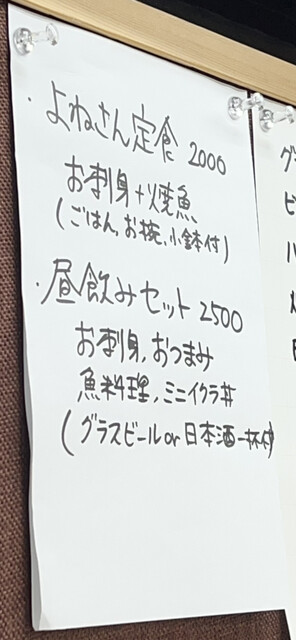 ・よねさん定食 2000
お刺身+焼魚
(ごはん、お椀、小鉢付)
・昼飲みセット 2500
お刺身、おつまみ
魚料理、ミニイクラ丼
(グラスビール or 日本酒一杯付)
グ
ビ
ハ